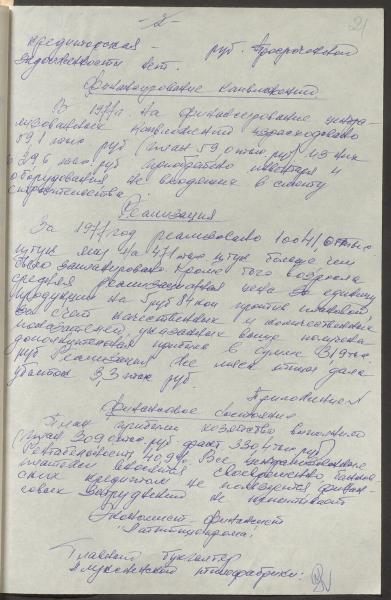 -2-
21
кредиторская - руб. Просроченной
задолженности нет.
Финансирование капвложений
В 1977г. на финансирование центра-
лизованных капвложений израсходовано
591 тыс руб (план 590 тыс.руб)
29,6 тыс руб приобретено инвентаря и
оборудования не входящих в смету
строительства.
Реализация
За 1977 год реализовано 10041, тыс.
штук яиц на 471 тыс штук больше чем
было запланировано. Кроме того возросла
средняя реализационная цена за единицу
продукции на руб 84 коп против плановой.
За счет качественных и количественных
показателей, указанных выше получена
дополнительная прибыль в сумме 319 тыс.
руб Реализация мяса птицы дала
убыток 3,3 тыс руб
Приложение
Финансовое состояние
План прибыли хозяйство выполнило
план 3090 тыс.руб. факт 3304 тыс руб
Рентабельность 40,9% Все
платежи вносятся своевременно
ских кредитом не пользуется финан-
совых затруднений не испытывает
Экономист-финансист
Главный бухгалтер
птицефабрики: